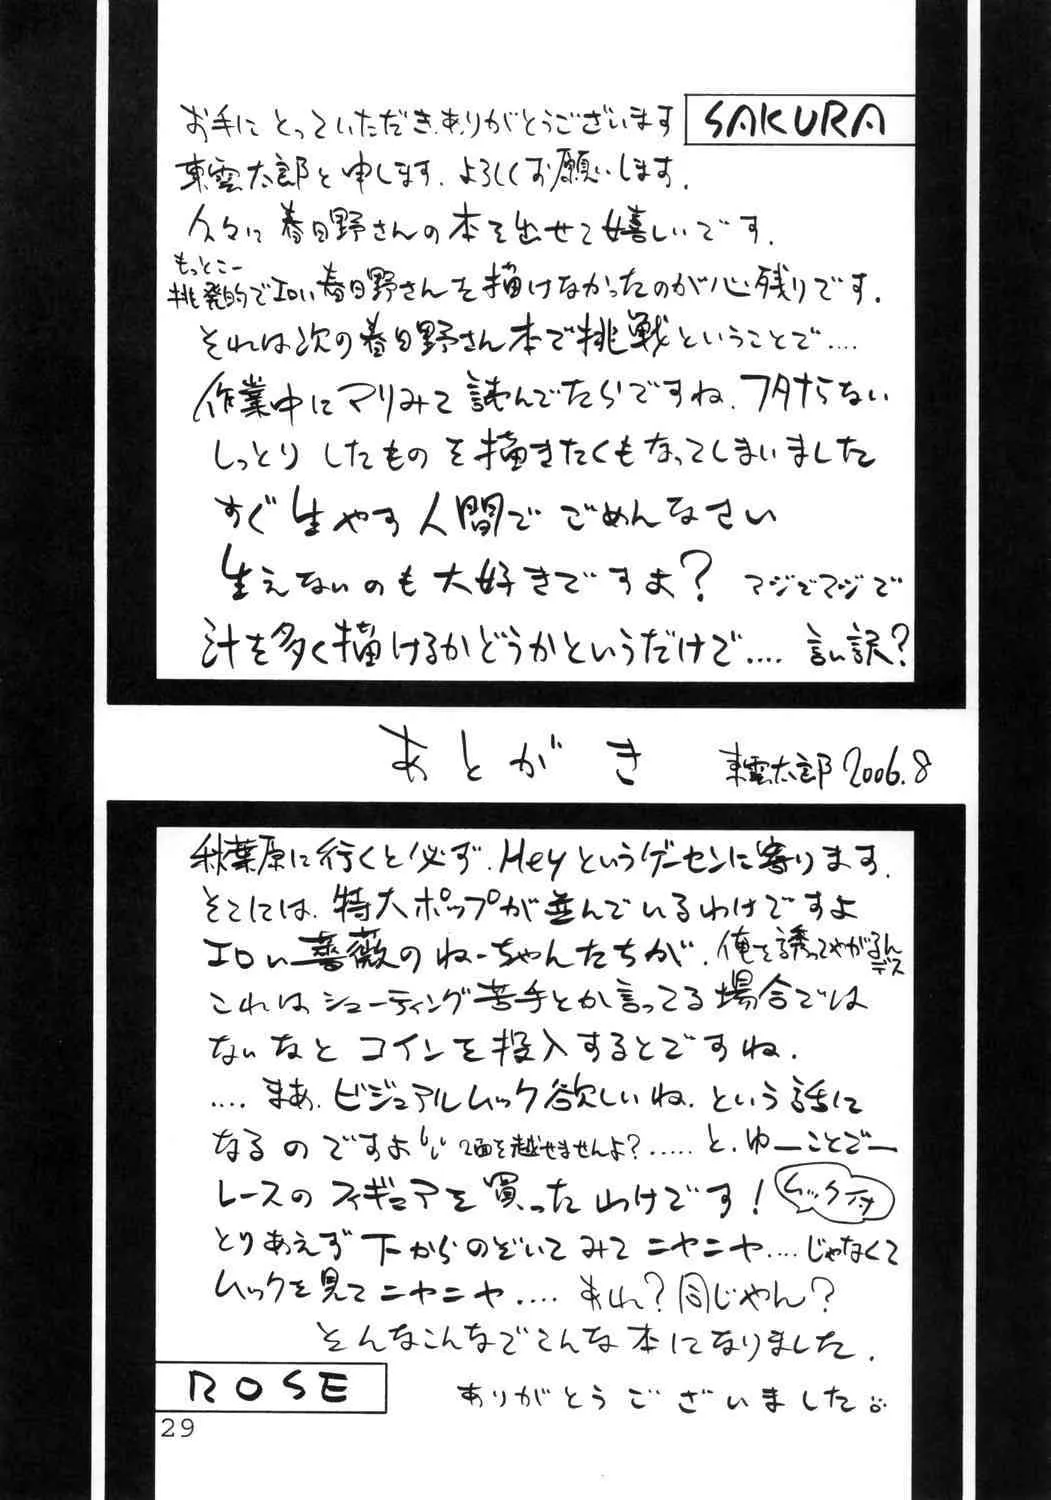 SAKURA
お手にとっていただきありがとうございます
東雲太郎と申します、よろしくお願いします。
久々に春日野さんの本を出せて嬉しいです。
もっとこー
挑発的でエロい春日野さんを描けなかったのが心残りです。
それは次の春日野さん本で挑戦ということで‥‥
作業中にマリみて読んでたらですね、フタナらない
しっとりしたものを描きたくもなってしまいました
すぐ生やす人間でごめんなさい
生えないのも大好きですよ？ マジでマジで
汁を多く描けるかどうかというだけで‥‥ 言い訳？
あとがき 東雲太郎 2006.8
秋葉原に行くと必ず、Heyというゲーセンに寄ります。
そこには、特大ポップが並んでいるわけですよ
エロい薔薇のねーちゃんたちが、俺を誘ってやがるんデス
これはシューティング苦手とか言ってる場合では
ないなとコインを投入するとですね、
‥‥まあ、ビジュアルムック欲しいね、という話に
なるのですよ 2面を越せませんよ？‥‥‥と、ゆーことでー
レースのフィギュアを買ったわけです！ ムック付
とりあえず下からのぞいてみてニヤニヤ‥‥じゃなくて
ムックを見てニヤニヤ‥‥あれ？同じやん？
そんなこんなでこんな本になりました。
ありがとうございました
ROSE
29